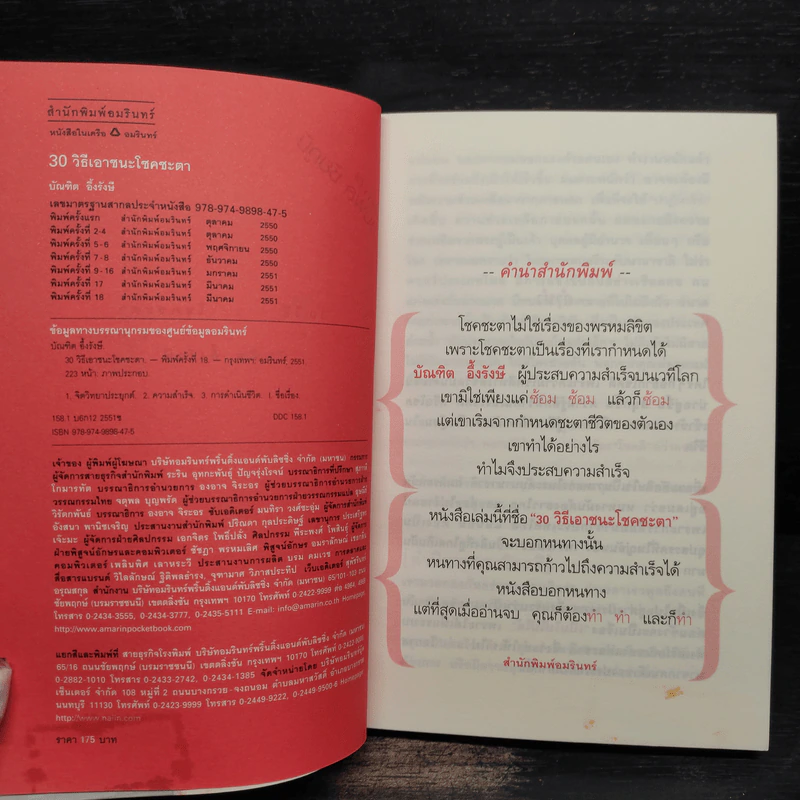 สำนักพิมพ์อมรินทร์
หนังสือในเครือ อมรินทร์
30 วิธีเอาชนะโชคชะตา
บัณฑิต อึ้งรังษี
เลขมาตรฐานสากลประจำหนังสือ 978-974-9898-47-5
พิมพ์ครั้งแรก สำนักพิมพ์อมรินทร์ ตุลาคม 2550
พิมพ์ครั้งที่ 2-4 สำนักพิมพ์อมรินทร์ ตุลาคม 2550
พิมพ์ครั้งที่ 5-6 สำนักพิมพ์อมรินทร์ พฤศจิกายน 2550
พิมพ์ครั้งที่ 7-8 สำนักพิมพ์อมรินทร์ ธันวาคม 2550
พิมพ์ครั้งที่ 9-16 สำนักพิมพ์อมรินทร์ มกราคม 2551
พิมพ์ครั้งที่ 17 สำนักพิมพ์อมรินทร์ มีนาคม 2551
พิมพ์ครั้งที่ 18 สำนักพิมพ์อมรินทร์ มีนาคม 2551
ข้อมูลทางบรรณานุกรมของศูนย์ข้อมูลอมรินทร์
บัณฑิต อึ้งรังษี.
30 วิธีเอาชนะโชคชะตา. -- พิมพ์ครั้งที่ 18. -- กรุงเทพฯ: อมรินทร์, 2551.
223 หน้า: ภาพประกอบ.
1. จิตวิทยาประยุกต์. 2. ความสำเร็จ. 3. การดำเนินชีวิต. I. ชื่อเรื่อง.
158.1 บ6ก12 2551ช DDC 158.1
ISBN 978-974-9898-47-5
เจ้าของ ผู้พิมพ์ผู้โฆษณา บริษัทอมรินทร์พริ้นติ้งแอนด์พับลิชชิ่ง จำกัด (มหาชน)
ผู้จัดการสายธุรกิจสำนักพิมพ์ ระริน อุทกะพันธุ์ ปัญจรุ่งโรจน์ บรรณาธิการที่ปรึกษา
โกมารทัต บรรณาธิการอำนวยการ องอาจ จิระอร
วรรณกรรมไทย จตุพล บุญพรัด ผู้ช่วยบรรณาธิการอำนวยการฝ่ายวรรณกรรมแปล
วิรัตกพันธ์ บรรณาธิการ องอาจ จิระอร ซับเอดิเตอร์ มนทิรา วงศ์ชะอุ่ม
อังสนา พานิชเจริญ ประสานงานสำนักพิมพ์ ปริณดา กุลประดิษฐ์ เลขานุการ
เจ๊ะมะ ผู้จัดการฝ่ายศิลปกรรม เอกจิตร โพธิ์ปลั่ง ศิลปกรรม พีระพงศ์ โพสินธุ์
ฝ่ายพิสูจน์อักษรและคอมพิวเตอร์ ชัชฎา พรหมเลิศ พิสูจน์อักษร
คอมพิวเตอร์ เพลินพิศ เลาหระวี ประสานงานการผลิต บรม คมเวช
สื่อสารแบรนด์ วิไลลักษณ์ ฐิติพลธำรง, จุฑามาศ วิภาสประทีป เว็บเอดิเตอร์
อรุณสกุล สำนักงาน บริษัทอมรินทร์พริ้นติ้งแอนด์พับลิชชิ่ง จำกัด (มหาชน) 65/101-103
ชัยพฤกษ์ (บรมราชชนนี) เขตตลิ่งชัน กรุงเทพฯ 10170 โทรศัพท์
โทรสาร 0-2434-3555, 0-2434-3777, 0-2435-5111 E-mail: info@amarin.com Homepage:
http://www.amarinpocketbook.com
แยกสีและพิมพ์ที่ สายธุรกิจโรงพิมพ์ บริษัทอมรินทร์พริ้นติ้งแอนด์พับลิชชิ่ง จำกัด (มหาชน)
65/16 ถนนชัยพฤกษ์ (บรมราชชนนี) เขตตลิ่งชัน กรุงเทพฯ 10170 โทรศัพท์
0-2882-1010 โทรสาร 0-2433-2742, 0-2434-1385 จัดจำหน่ายโดย บริษัทอมรินทร์บุ๊ค
เซ็นเตอร์ จำกัด 108 หมู่ที่ 2 ถนนบางกรวย-จงถนอม ตำบลมหาสวัสดิ์ อำเภอบางกรวย
นนทบุรี 11130 โทรศัพท์ 0-2423-9999 โทรสาร 0-2449-9222, 0-2449-9500-6 Homepage:
http://www.naiin.com
ราคา 175 บาท
-- คำนำสำนักพิมพ์ --
โชคชะตาไม่ใช่เรื่องของพรหมลิขิต
เพราะโชคชะตาเป็นเรื่องที่เรากำหนดได้
บัณฑิต อึ้งรังษี ผู้ประสบความสำเร็จบนเวทีโลก
เขามิใช่เพียงแค่ซ้อม ซ้อม แล้วก็ซ้อม
แต่เขาเริ่มจากกำหนดชะตาชีวิตของตัวเอง
เขาทำได้อย่างไร
ทำไมจึงประสบความสำเร็จ
หนังสือเล่มนี้ที่ชื่อ "30 วิธีเอาชนะโชคชะตา"
จะบอกหนทางนั้น
หนทางที่คุณสามารถก้าวไปถึงความสำเร็จได้
หนังสือบอกหนทาง
แต่ที่สุดเมื่ออ่านจบ คุณก็ต้องทำ ทำ และก็ทำ
สำนักพิมพ์อมรินทร์